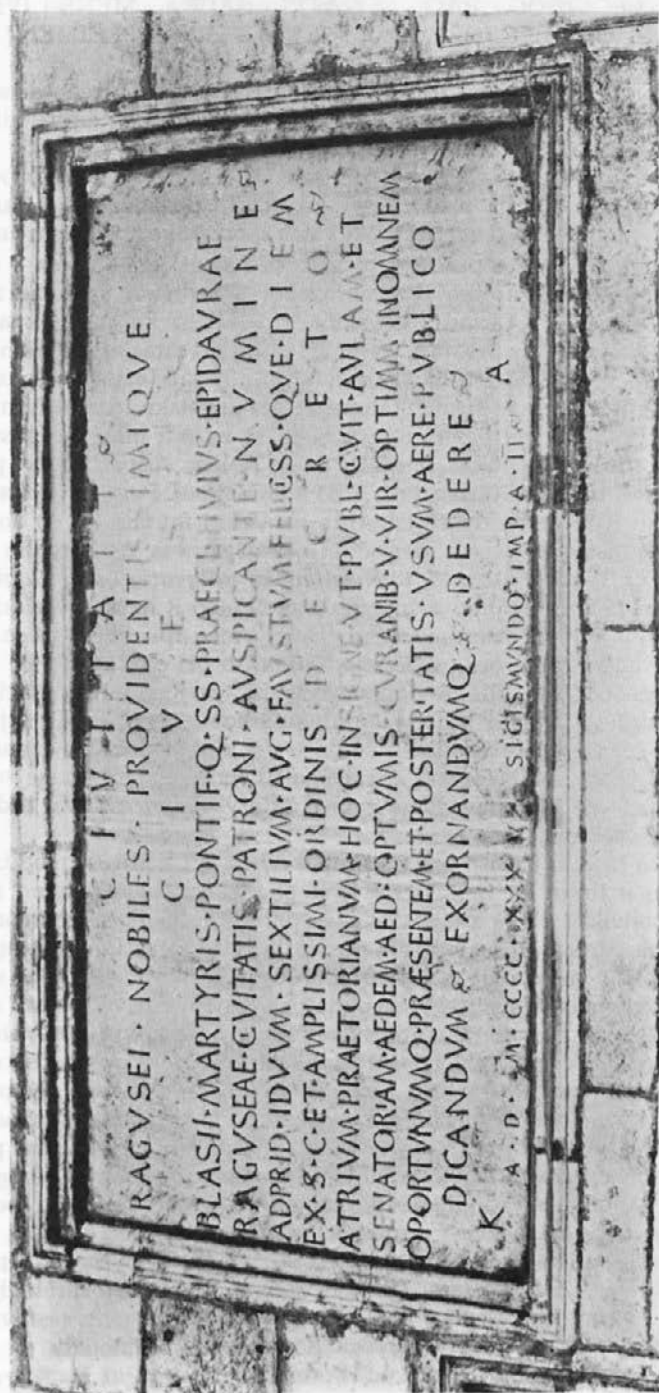 CIVITATI
RAGVSEI · NOBILES · PROVIDENTISSIMIQVE
CIVES
BLASII · MARTYRIS · PONTIF · Q · SS · PRAECL VIVIVS · EPIDAVRAE
RAGVSEAE · CVITATIS · PATRONI · AVSPICANTE · NVMINE
ADPRID · IDVVM · SEXTILIVM · AVG · FAVSTVM · FELCSS · QVE · DIEM
EX · S · C · ET · AMPLISSIMI · ORDINIS · DECRETO
ATRIVM · PRAETORIANVM · HOC · INSIGNE · VT · PVBL · CVIT · AVLAM · ET
SENATORIAM · AEDEM · AED · OPTVMIS · CVRANIB · V · VIR · OPTIMM · INOMNEM
OPORTVNVMQ · PRÆSENTEM · ET · POSTERITATIS · VSVM · AERE · PVBLICO
DICANDVM EXORNANDVMQ DEDERE
K A
A · D · M · CCCC · XXX SIGISMVNDO · IMP · A ·